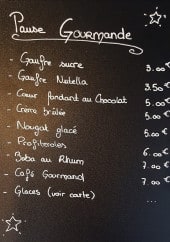 Pause Gourmande
- Gaufre sucre 3.00€
- Gaufre Nutella 3.50€
- Coeur fondant au Chocolat 5.00€
- Crème brûlée 5.00€
- Nougat glacé 5.00€
- Profiteroles 6.00€
- Baba au Rhum 7.00€
- Café Gourmand 7.00€
- Glaces (voir carte)